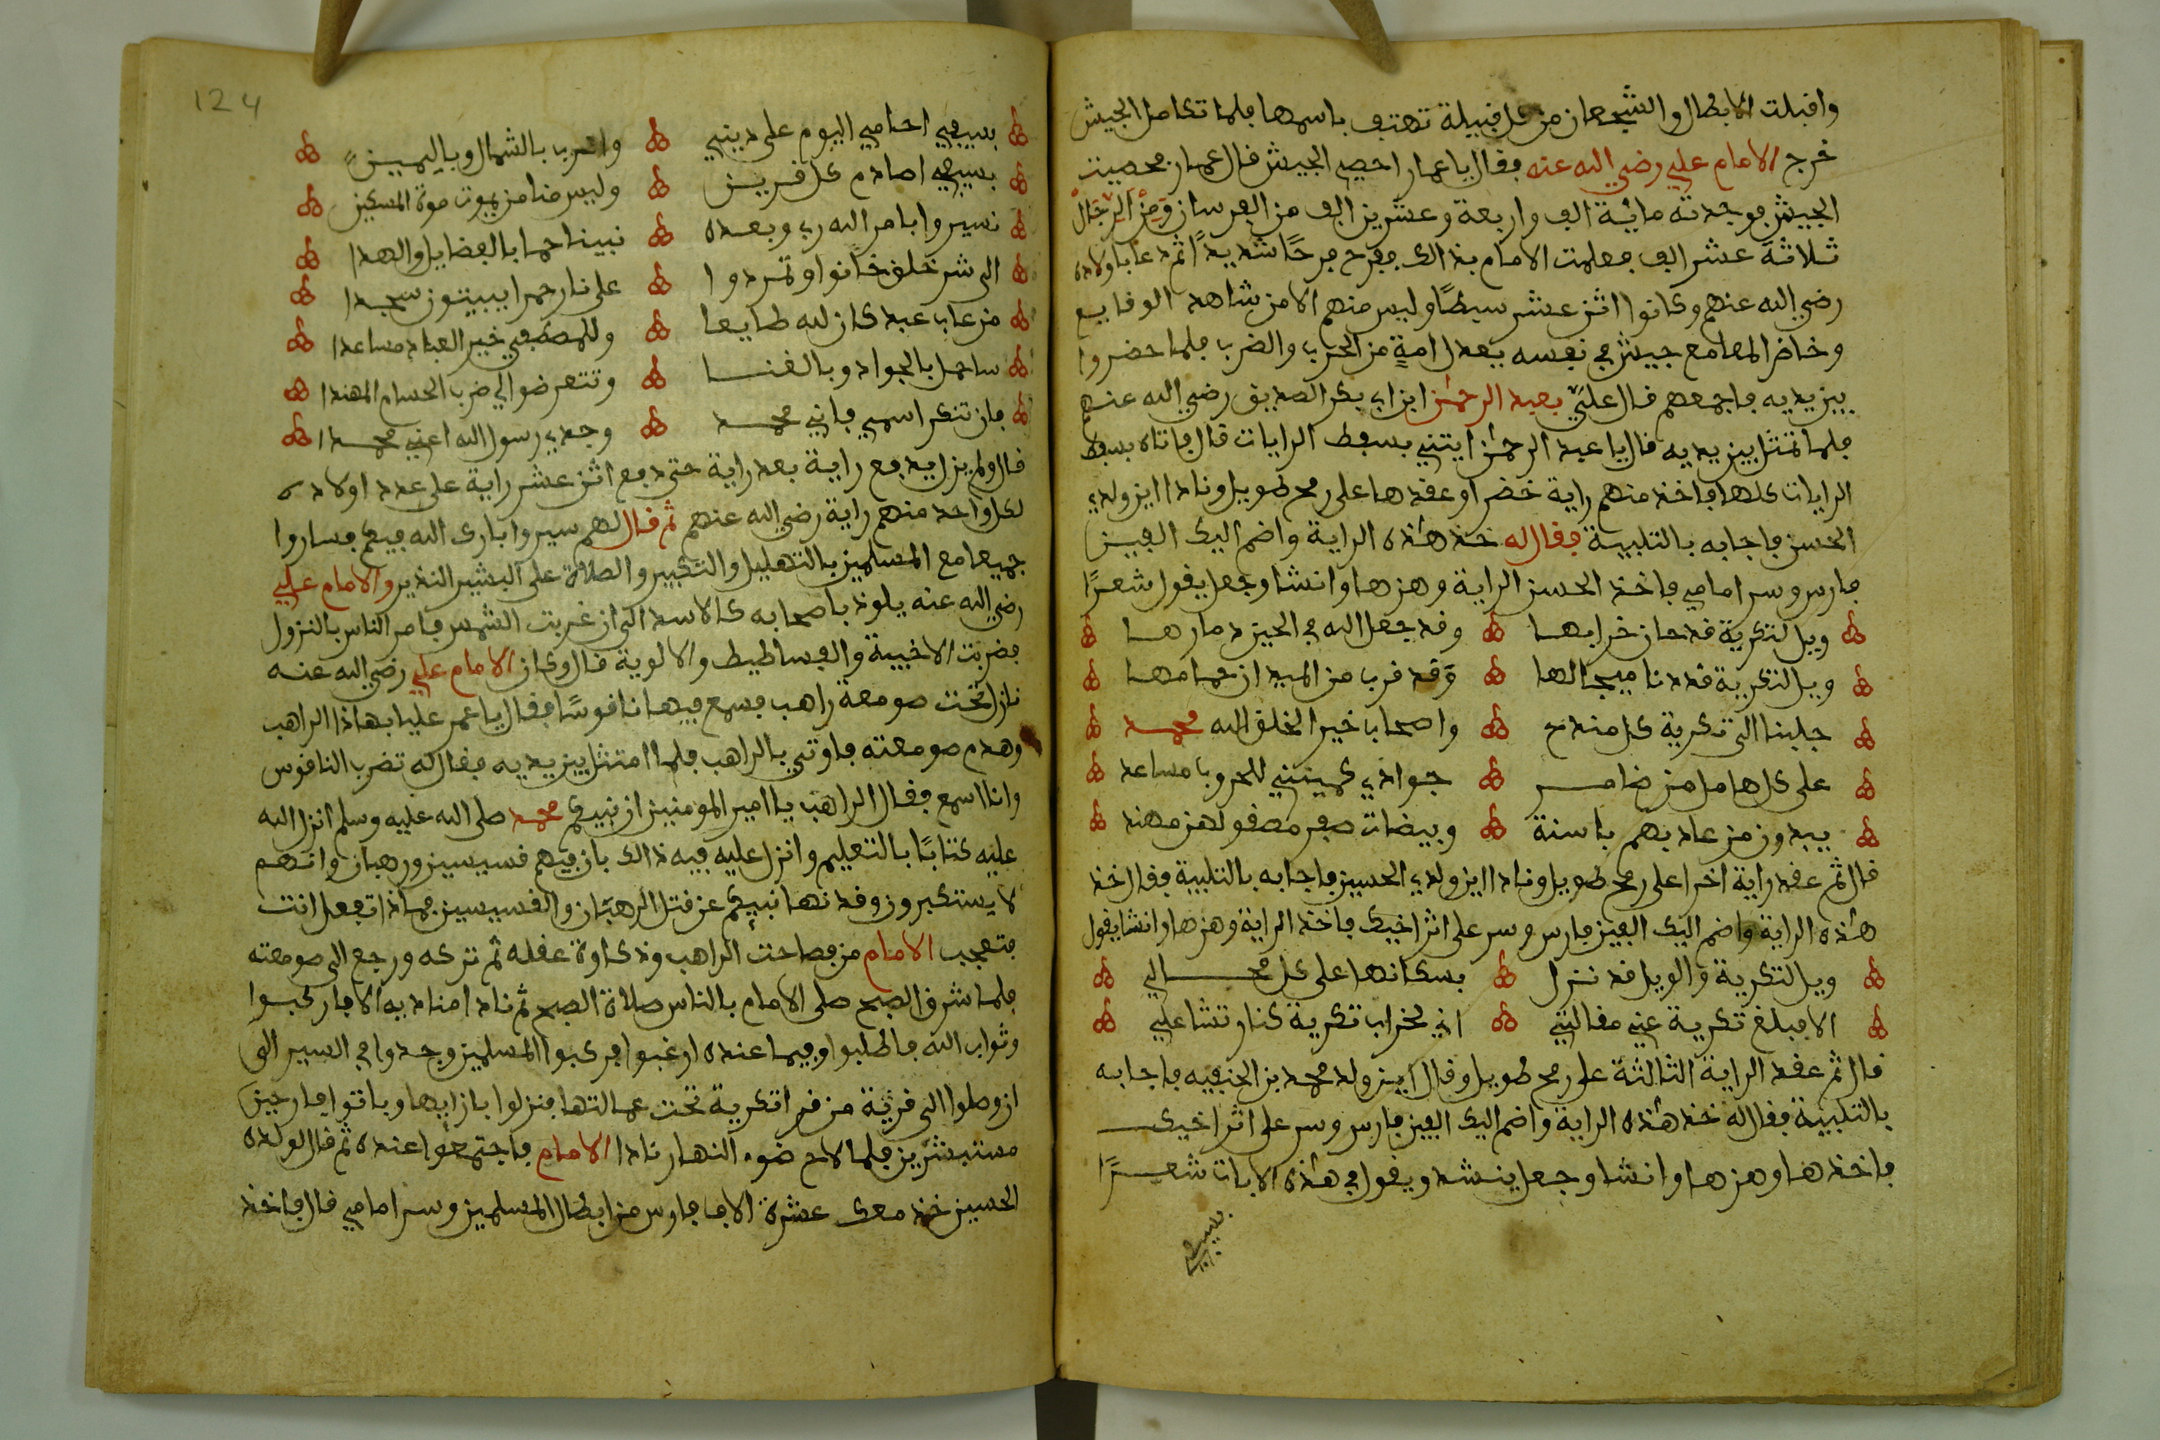 واقبلت الابطال والشجعان من كل قبيلة تهتف باسمها فلما تكامل الجيش
خرج الامام علي رضي الله عنه فقال يا عمار احصي الجيش قال عمار فحصيت
الجيش فوجدته ماية الف واربعة وعشرين الف من الفرسان وَمِنْ الرِّجَالْ
ثلاثة عشر الف فعلمت الامام بذالك ففرح فرحًا شديدًا ثم دعا باولاده
رضي الله عنهم وكانوا اثن عشر سبطًا وليس منهم الا من شاهد الوقايع
وخاض المعامع جيش في نفسه يعدل امةٍ من الحرب والضرب فلما حضروا
بين يديه باجمعهم قال عليّ بعبد الرحمن ابن ابي بكر الصديق رضي الله عنهم
فلما تمثل بين يديه قال يا عبد الرحمن ايتني بسفط الرايات قال فاتاه بسفط
الرايات كلها فاخذ منهم راية خضرا وعقدها على رمح طويل ونادا اين ولدي
الحسن فاجابه بالتلبية فقال له خذ هذه الراية واضم اليك الفين
فارس وسر امامي فاخذ الحسن الراية وهزها وانشا وجعل يقول شعرًا
ويل لتكرية قد حان خرابها وقد جعل الله في الحين دمارها
ويل لتكرية قد دنا ميجالها وقد قرب من الميدان حمامها
جلبنا الى تكرية كل مندح واصحاب خير الخلق الله محمد
على كل هامل من ضامر جوادي كميتني للحروب مساعد
يبدون من عاد بهم باسنة وبيضات صفر مصقولهن مهند
قال ثم عقد راية اخرا على رمح طويل ونادا اين ولدي الحسين فاجابه بالتلبية فقال خذ
هذه الراية واضم اليك الفين فارس وسر على اثر اخيك فاخذ الراية وهزها وانشا يقول
ويل لتكرية والويل قد نزل بسكانها على كل محالي
الا فبلغ تكرية عني مقالتي اني لخراب تكرية كنار تشاعلي
قال ثم عقد الراية الثالثة على رمح طويل وقال اين ولد محمد بن الحنفيه فاجابه
بالتلبية فقال له خذ هذه الراية واضم اليك الفين فارس وسر على اثر اخيك
فاخذها وهزها وانشا وجعل ينشد ويقول في هذه الابيات شعرًا
بسيفي
124
بسيفي احامي اليوم على ديني واضرب بالشمال وباليمين
بسيفي اصادم كل قرين وليس منا من يموت موة المسكين
نسيروا بامر الله ربي وبعده نبينا حما بالفضايل والهدا
الى شر خلق خانوا وتمردوا على نار حمرا يبيتون سجدا
من عاب عبد كان لله طايعا وللمصطفي خير العباد مساعدا
ساحمل بالجواد وبالقنا وتتعرضوا الي ضرب الحسام المهندا
فان تنكر اسمي فاني محمد وجدي رسول الله اعني محمدا
قال ولم يزل يدفع راية بعد راية حتى دفع اثن عشر راية على عدد اولاده
لكل واحد منهم راية رضي الله عنهم ثم قال لهم سيروا بارك الله فيكم فساروا
جميعا مع المسلمين بالتهليل والتكبير والصلاة على البشير النذير والامام علي
رضي الله عنه يلوذ باصحابه كالاسد الى ان غربت الشمس فامر الناس بالنزول
فضربت الاخبية والفساطيط والالوية قال وكان الامام علي رضي الله عنه
نازل تحت صومعة راهب فسمع فيها ناقوسًا فقال يا عمر عليا بهاذا الراهب
وهدم صومعته فاوتي بالراهب فلما امتثل بين يديه فقال له تضرب الناقوس
وانا اسمع فقال الراهب يا امير المومنين ان نبيكم محمد صلى الله عليه وسلم انزل الله
عليه كتابًا بالتعليم وانزل عليه فيه ذالك بان فيهم قسيسين ورهبان وانهم
لا يستكبرون وقد نها نبيكم عن قتل الرهبان والقسيسين فماذا تفعل انت
فتعجب الامام من فصاحت الراهب وذكاوة عقله ثم تركه ورجع الى صومعته
فلما شرق الصبح صلى الامام بالناس صلاة الصبح ثم نادا مناديه الا فاركبوا
وثواب الله فاطلبوا وفيما عنده ارغبوا فركبوا المسلمين وجدوا في السير الى
ان وصلوا الى قرية من قرا تكرية تحت عمالتها فنزلوا بازايها وباتوا فارحين
مستبشرين فلما لاح ضوء النهار نادا الامام فاجتمعوا عنده ثم قال لولده
الحسين خذ معك عشرة الاف فارس من ابطال المسلمين وسر امامي قال فاخذ